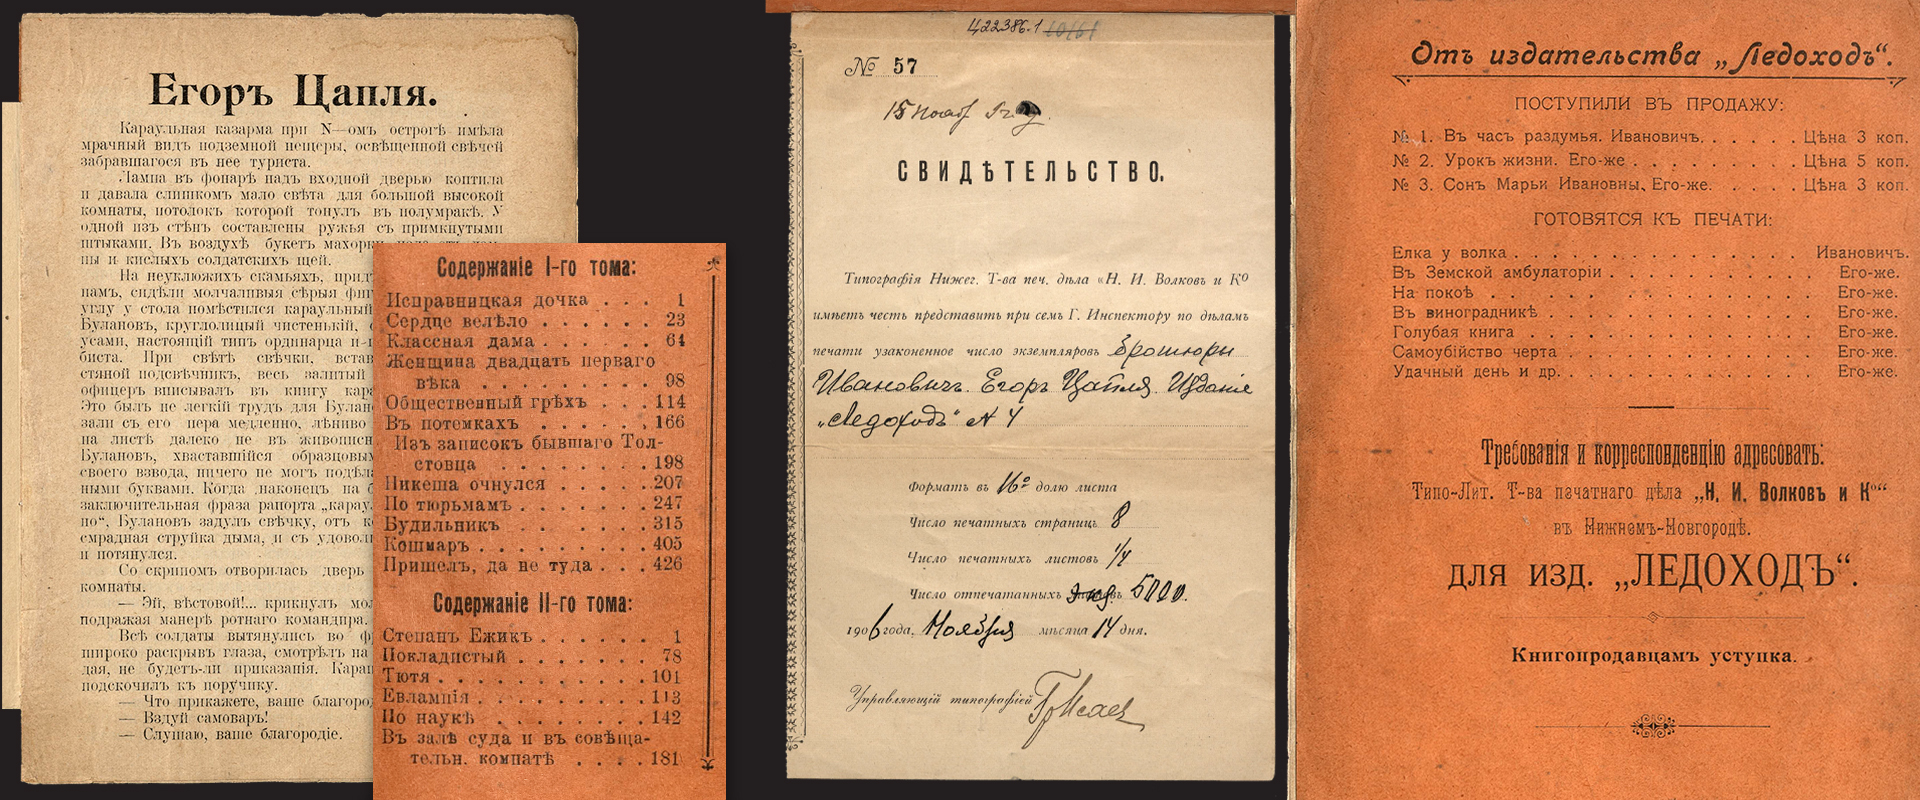 Егоръ Цапля.
Караульная казарма при N—омъ острогѣ имѣла
мрачный видъ подземной пещеры, освѣщенной свѣчей
забравшагося въ нее туриста.
Лампа въ фонарѣ надъ входной дверью коптила
и давала слишкомъ мало свѣта для большой высокой
комнаты, потолокъ которой тонулъ въ полумракѣ. У
одной изъ стѣнъ составлены ружья съ примкнутыми
штыками. Въ воздухѣ букетъ махорки,
ны и кислыхъ солдатскихъ щей.
На неуклюжихъ скамьяхъ,
намъ, сидѣли молчаливыя сѣрыя
углу у стола помѣстился караульный
Булановъ, круглолицый чистенькій,
усами, настоящій типъ ординарца
биста. При свѣтѣ свѣчки,
стяной подсвѣчникъ, весь залитый
офицеръ вписывалъ въ книгу
Это былъ не легкій трудъ для
зали съ его пера медленно, лѣниво
на листѣ далеко не въ
Булановъ, хваставшійся
своего взвода, ничего не могъ
ными буквами. Когда наконецъ на
заключительная фраза рапорта
но“, Булановъ задулъ свѣчку, отъ
смрадная струйка дыма, и съ
и потянулся.
Со скрипомъ отворилась дверь
комнаты.
— Эй, вѣстовой!... крикнулъ
подражая манерѣ ротнаго командира.
Всѣ солдаты вытянулись во
широко раскрывъ глаза, смотрѣлъ на
дая, не будетъ-ли приказанія.
подскочилъ къ поручику.
— Что прикажете, ваше
— Вздуй самоваръ!
— Слушаю, ваше благородіе.
Содержаніе I-го тома:
Исправницкая дочка . . . 1
Сердце велѣло . . . . . . 23
Классная дама . . . . . . 64
Женщина двадцать перваго
вѣка . . . . . . . . . 98
Общественный грѣхъ . . . 114
Въ потемкахъ . . . . . . 166
Изъ записокъ бывшаго Тол-
стовца . . . . . . . . 198
Никеша очнулся . . . . . 207
По тюрьмамъ . . . . . . . 247
Будильникъ . . . . . . . 315
Кошмаръ . . . . . . . . . 405
Пришелъ, да не туда . . . 426
Содержаніе II-го тома:
Степанъ Ежикъ . . . . . . 1
Покладистый . . . . . . . 78
Тютя . . . . . . . . . . . 101
Евлампія . . . . . . . . . 113
По наукѣ . . . . . . . . 142
Въ залѣ суда и въ совѣща-
тельн. комнатѣ . . . . 181
Ц22386.1
№ 57
СВИДѢТЕЛЬСТВО.
Типографія Нижег. Т-ва печ. дѣла «Н. И. Волковъ и Ко
имѣетъ честь представить при семъ Г. Инспектору по дѣламъ
печати узаконенное число экземпляровъ брошюры
Ивановичъ. Егоръ Цапля. Изданіе
„Ледоходъ“ № 4
Форматъ въ 16о долю листа
Число печатныхъ страницъ 8
Число печатныхъ листовъ 1/4
Число отпечатанныхъ экз. 5000.
1906 года, Ноября мѣсяца 14 дня.
Управляющій типографіей
Отъ издательства „Ледоходъ“.
ПОСТУПИЛИ ВЪ ПРОДАЖУ:
№ 1. Въ часъ раздумья. Ивановичъ. . . . . . Цѣна 3 коп.
№ 2. Урокъ жизни. Его-же . . . . . . . . . Цѣна 5 коп.
№ 3. Сонъ Марьи Ивановны, Его-же. . . . . . Цѣна 3 коп.
ГОТОВЯТСЯ КЪ ПЕЧАТИ:
Елка у волка . . . . . . . . . . . . . . . Ивановичъ.
Въ Земской амбулаторіи . . . . . . . . . . Его-же.
На покоѣ . . . . . . . . . . . . . . . . . Его-же.
Въ виноградникѣ . . . . . . . . . . . . . Его-же.
Голубая книга . . . . . . . . . . . . . . Его-же.
Самоубійство черта . . . . . . . . . . . . Его-же.
Удачный день и др. . . . . . . . . . . . . Его-же.
Требованія и корреспонденцію адресовать:
Типо-Лит. Т-ва печатнаго дѣла „Н. И. Волковъ и Ко“
въ Нижнемъ-Новгородѣ.
ДЛЯ ИЗД. „ЛЕДОХОДЪ“.
Книгопродавцамъ уступка.